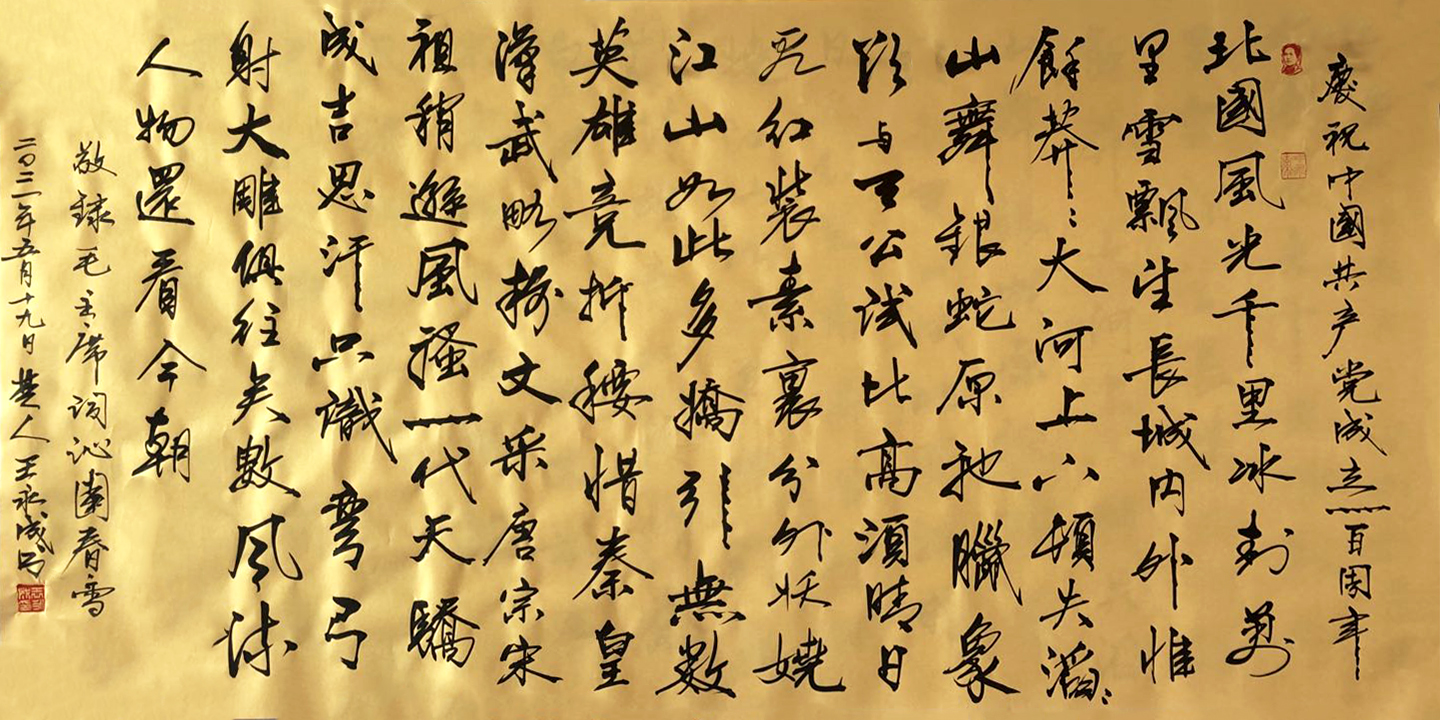 慶祝中國共产党成立一百周年
北國風光千里冰封萬
里雪飄望長城内外惟
餘莽〻大河上下頓失滔〻
山舞銀蛇原馳臘象
欲与天公試比高須晴日
看红裝素裹分外妖嬈
江山如此多嬌引無数
英雄竞折腰惜秦皇
漢武略輸文采唐宗宋
祖稍遜風騷一代天驕
成吉思汗只識彎弓
射大雕俱往矣數風流
人物還看今朝
敬録毛主席词沁園春雪
二〇二一年五月十九日楚人王永成书